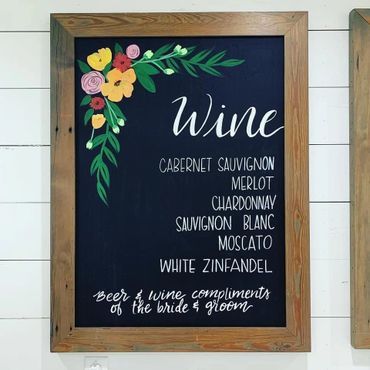 Wine
CABERNET SAUVIGNON
MERLOT
CHARDONNAY
SAUVIGNON BLANC
MOSCATO
WHITE ZINFANDEL
Beer & wine compliments
of the bride & groom